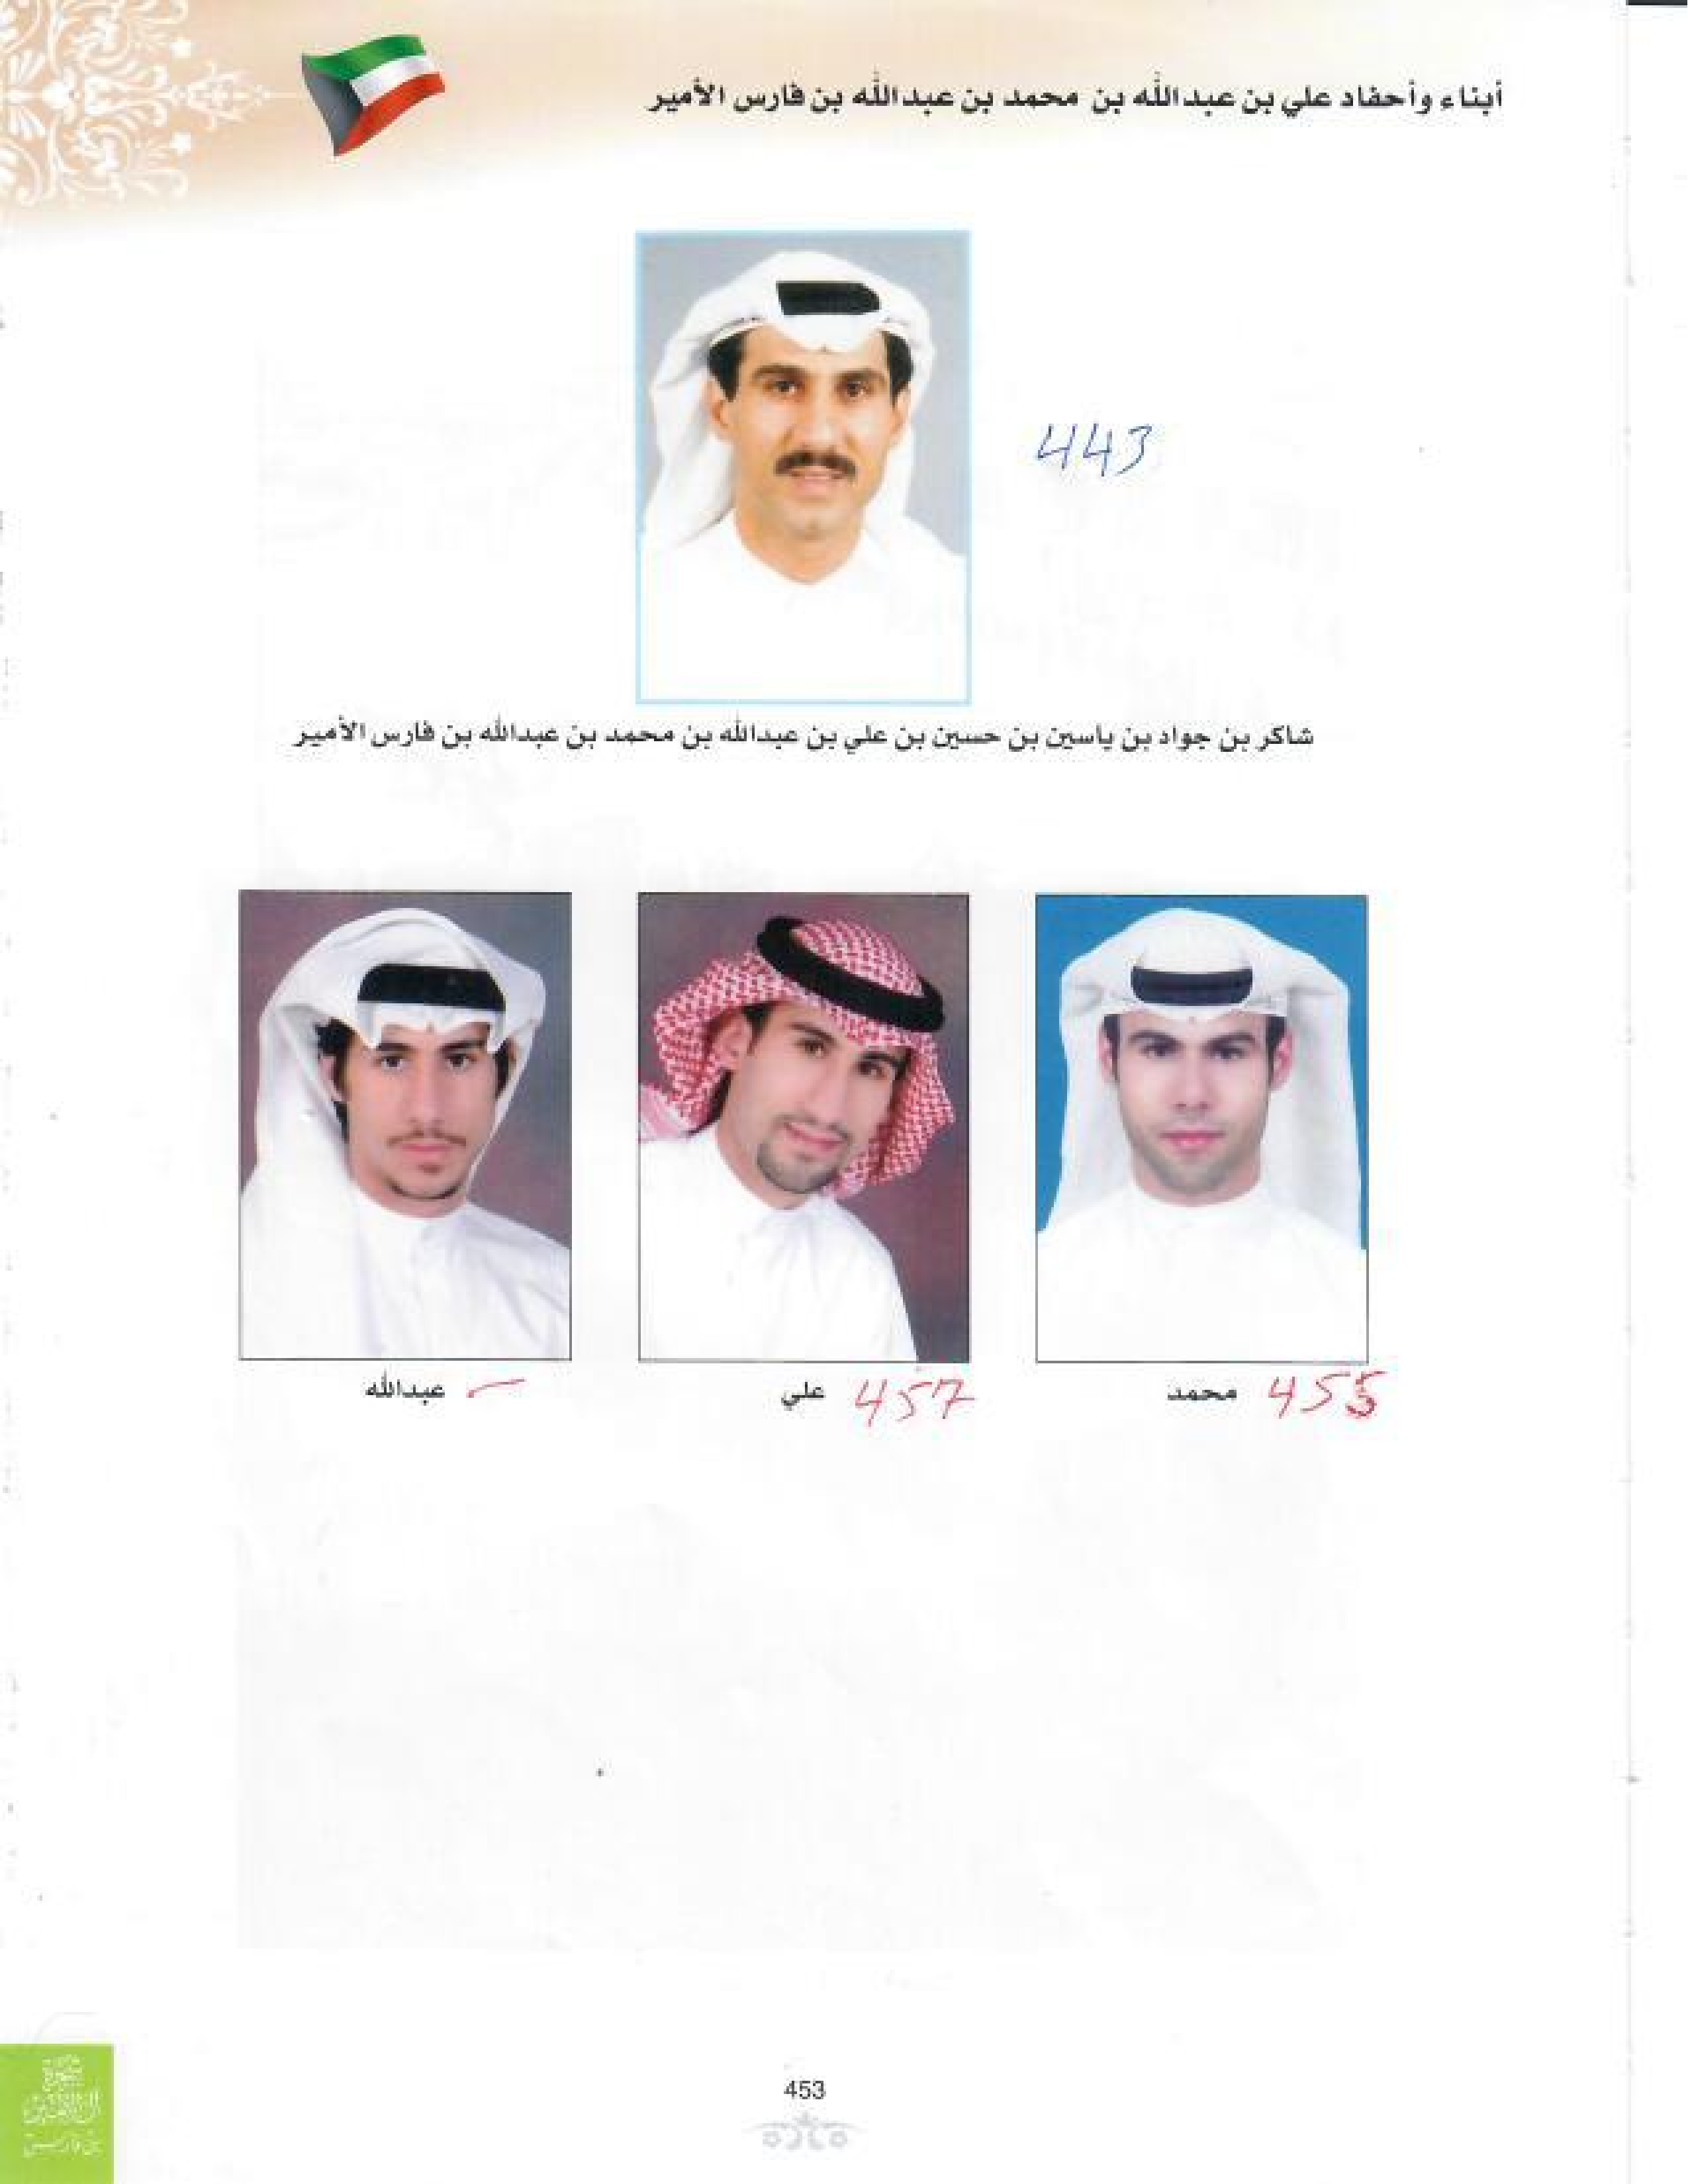 أبناء وأحفاد علي بن عبدالله بن محمد بن عبدالله بن فارس الأمير
443
شاكر بن جواد بن ياسين بن حسين بن علي بن عبدالله بن محمد بن عبدالله بن فارس الأمير
محمد 455
علي 457
عبدالله
شجرة
بن فارس
453